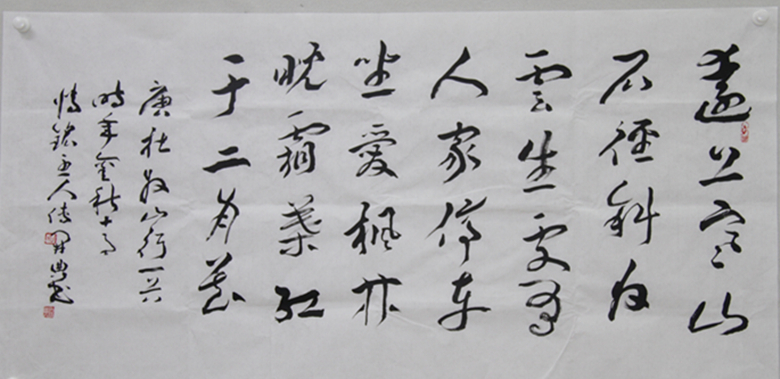 遠上寒山
石徑斜白
雲生處有
人家停車
坐愛楓林
晚霜葉紅
于二月花
唐杜牧山行一首
時年金秋十月